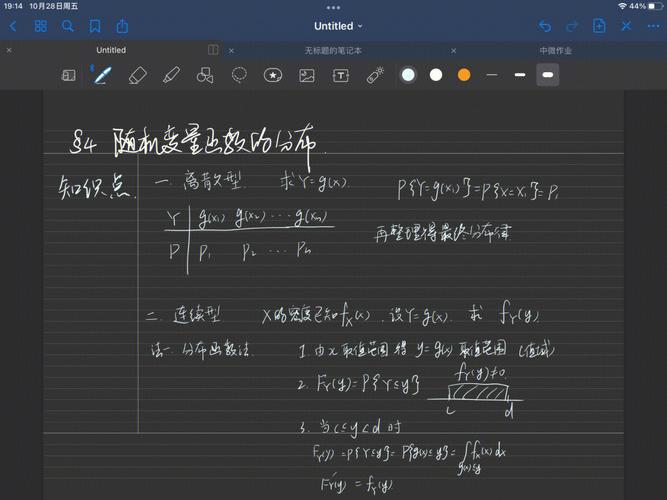 19:14 10月28日周五
44%
Untitled
Untitled
无标题的笔记本
中微作业
§4 随机变量函数的分布.
知识点.
一. 离散型. 求Y=g(x).
P{Y=g(x₁)}=P{X=x₁}=P₁
Y g(x₁) g(x₂) ··· g(xₙ)
P P₁ P₂ ··· Pₙ
再整理得最终分布律
二. 连续型 X的密度已知fₓ(x). 设Y=g(x). 求 f_Y(y).
法一. 分布函数法. 1. 由x取值范围得 y=g(x) 取值范围 (值域)
2. F_Y(y)=P{Y≤y} f_Y(y)≠0.
c d
3. 当c≤y<d时
F_Y(y)=P{Y≤y}=P{g(x)≤y}=∫fₓ(x)dx
g(x)≤y
F_Y'(y)=f_Y(y)